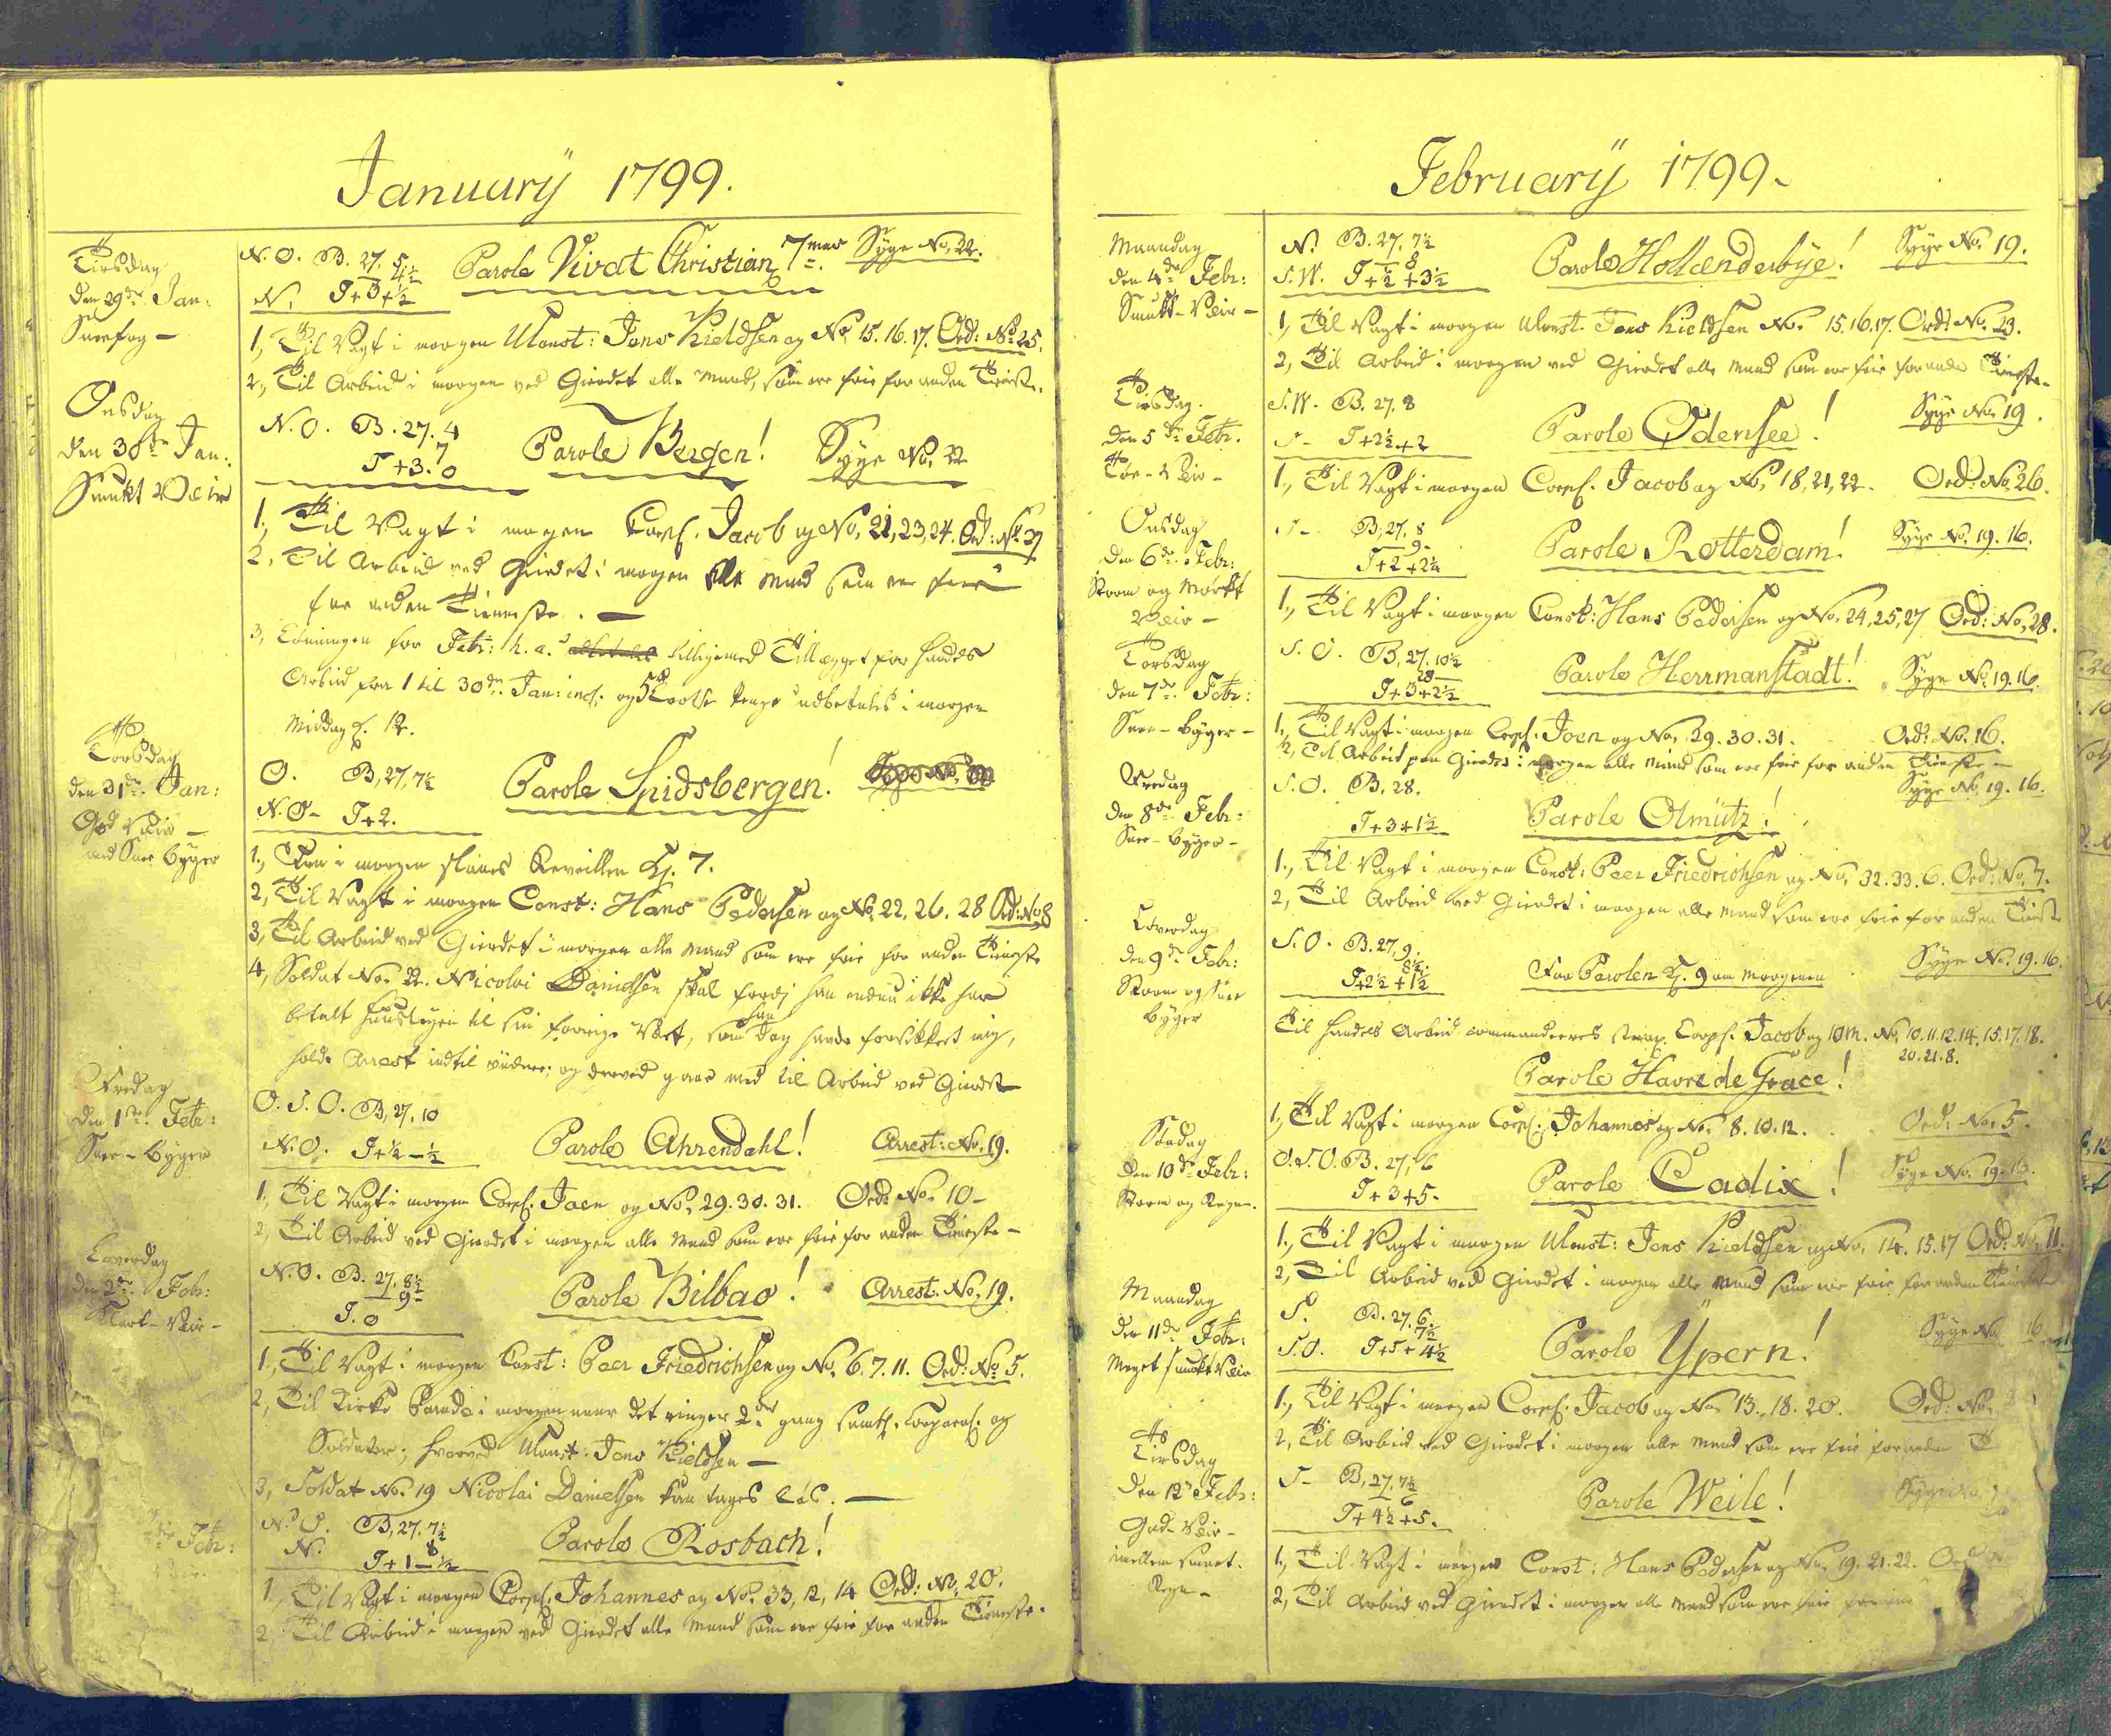 January 1799.
Tirsdag
den 29de Jan:
Sneefog -
N.O. B. 27. 5
4½
N. T+3+½
Parole Vivat Christian 7mus
Syge No. 22.
1, Til Vagt i morgen Uконst: Jens Kieldsen og No. 15. 16. 17. Ord: No. 25.
2, Til Arbeid i morgen ved Gierdet alle Mand, som ere frie for anden Tieneste.
Onsdag
den 30te Jan:
Smukt Veir
N.O. B. 27. 4
7
T+3. 0
Parole Bergen!
Syge No. 22
1, Til Vagt i morgen Corpl. Jacob og No. 21, 23, 24. Ord: No. 27
2, Til Arbeid ved Gierdet i morgen alle Mand som ere frie
for anden Tieneste. -
3, Lönningen for Febr: h. a. tilligemed Tillægget for Handels
Arbeid fra 1 til 30te Jan: incl. og Penge udbetales i morgen
Middag Kl. 12.
Torsdag
den 31te Jan:
God Veir -
med Snee Byger
O. B. 27, 7½
N.O- T+2.
Parole Spidsbergen!
1, Fra i morgen slaaes Reveillen Kl. 7.
2, Til Vagt i morgen Const: Hans Pedersen og No. 22, 26. 28 Ord: No 8
3, Til Arbeid ved Gierdet i morgen alle Mand som ere frie for anden Tieneste
4, Soldat No. 22. Nicolai Danielsen skal fordi han endnu ikke har
betalt Huusleyen til sin forrige Vært, som han dog havde forsikkret mig,
holde Arrest indtil videre; og derved gaae med til Arbeid ved Gierdet
Fredag
den 1te Febr:
Snee-Byger
O.S.O. B. 27, 10
N.O. T+½-½
Parole Ahrendahl!
Arrest: No. 19.
1, Til Vagt i morgen Corpl. Joen og No. 29. 30. 31. Ord: No. 10-
2, Til Arbeid ved Gierdet i morgen alle Mand som ere frie for anden Tieneste -
Løverdag
den 2den Febr:
Klart-Veir -
N.O. B. 27. 8½
9-
T. 0
Parole Bilbao!
Arrest. No. 19.
1, Til Vagt i morgen Const: Peer Friedrichsen og No. 6. 7. 11. Ord: No 5.
2, Til Kirke Parade i morgen naar det ringer 2den gang samtl. Corporal. og
Soldater; hvorved Jens Kieldsen -
3, Soldat No. 19 Nicolai Danielsen kan tages løs. -
Febr:
N.O. B. 27. 7½
8
N. T+1-½
Parole Rosbach!
1, Til Vagt i morgen Corpl. Johannes og No. 33, 12, 14 Ord: No. 20.
2, Til Arbeid i morgen ved Gierdet alle Mand som ere frie for anden Tieneste.
February 1799.
Maandag
den 4de Febr:
Smukt-Veir -
N. B. 27, 7½
8
S.W. T+½+3½
Parole Hollænderbye!
Syge No. 19.
1, Til Vagt i morgen Jens Kieldsen No. 15. 16. 17. Ord: No. 23.
2, Til Arbeid i morgen ved Gierdet alle Mand som ere frie for anden Tieneste-
Tirsdag
den 5te Febr.
Tøe-Veir -
S.W. B. 27. 8
S- T+2½+2
Parole Odensee!
Syge No. 19.
1, Til Vagt i morgen Corpl. Jacob og No. 18, 21, 22. Ord: No. 26.
Onsdag
den 6te Febr:
Storm og Mørkt
Veir -
S- B. 27. 8
9-
T+2+2¼
Parole Rotterdam!
Syge No. 19. 16.
1, Til Vagt i morgen Const: Hans Pedersen og No. 24, 25, 27 Ord: No. 28.
Torsdag
den 7de Febr:
Snee-Byger -
S.O. B. 27. 10½
28
T+3+2½
Parole Herrmanstadt!
Syge No. 19. 16.
1, Til Vagt i morgen Corpl. Joen og No. 29. 30. 31. Ord: No. 16.
2, Til Arbeid paa Gierdet i morgen alle Mand som ere frie for anden Tieneste -
Fredag
den 8de Febr:
Snee-Byger -
S.O. B. 28.
T+3+1½
Parole Olmütz!
Syge No. 19. 16.
1, Til Vagt i morgen Const: Peer Friedrichsen og No. 32. 33. 6. Ord: No. 7.
2, Til Arbeid ved Gierdet i morgen alle Mand som ere frie for anden Tieneste
Løverdag
den 9de Febr:
Storm og Snee
Byger
S.O. B. 27, 9
8½
T+2½+1½
Før Parolen Kl. 9 om Morgenen
Syge No. 19. 16.
Til Handels Arbeid commanderes strax Corpl. Jacob og 10 M. No. 10. 11. 12. 14. 15. 17. 18.
20. 21. 8.
Parole Havre de Grace!
1, Til Vagt i morgen Corpl. Johannes og No. 8. 10. 12. Ord: No. 5.
Søndag
den 10de Febr:
Storm og Regn.
O.S.O. B. 27, 6
T+3+5-
Parole Cadix!
Syge No. 19. 16.
1, Til Vagt i morgen Jens Kieldsen og No. 14. 15. 17 Ord: No. 11.
2, Til Arbeid ved Gierdet i morgen alle Mand som ere frie for anden Tieneste
Maandag
den 11te Febr:
Meget smukt Veir
S. B. 27. 6.
7½
S.O. T+5+4½
Parole Ypern!
Syge No. 16
1, Til Vagt i morgen Corpl. Jacob og No. 13. 18. 20. Ord: No.
2, Til Arbeid ved Gierdet i morgen alle Mand som ere frie for anden T
Tirsdag
den 12te Febr:
God-Veir -
imellem smaat.
Regn -
S- B. 27. 7½
6
T+4½+5.
Parole Weile!
Syge No.
1, Til Vagt i morgen Const: Hans Pedersen og No. 19. 21. 22. Ord
2, Til Arbeid ved Gierdet i morgen alle Mand som ere frie for